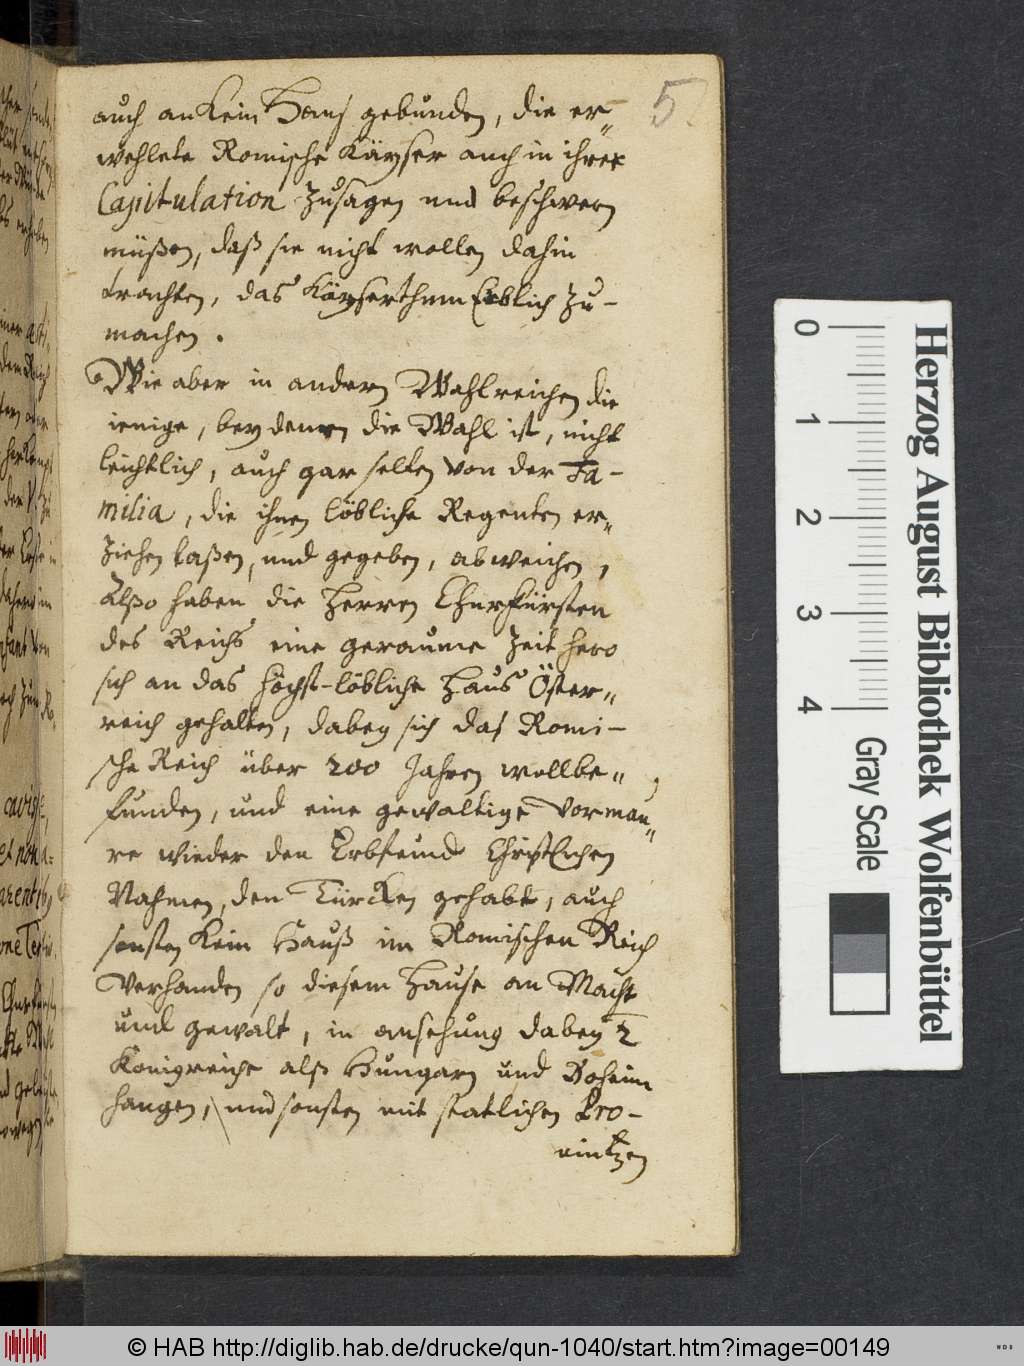 5.
auch an kein Haus gebunden, die er„
wehlete Romische Käyser auch in ihrer
Capitulation zusagen und beschwern
müßen, daß sie nicht wollen dahin
trachten, das Käyserthum Erblich zu-
machen.
Wie aber in andern Wahlreichen die
ienige, bey denen die Wahl ist, nicht
leichtlich, auch gar selten von der Fa-
milia, die ihnen löbliche Regenten er„
ziehen laßen, und gegeben, abweichen,
Alßo haben die Herren Churfürsten
des Reichs eine geraume Zeit hero
sich an das höchst-löbliche Haus Öster„
reich gehalten, dabey sich das Romi-
sche Reich über 200 Jahren wollbe„
funden, und eine gewaltige Vormau„
re wieder den Erbfeind Christlichen
Nahmen, den Türcken gehabt, auch
sonsten kein Hauß im Romischen Reich
verhanden so diesem Hause an Macht
und gewalt, in ansehung dabey 2
Konigreiche alß Hungarn und Boheim
hangen, und sonsten mit statlichen Pro-
vintzen
0 1 2 3 4
Herzog August Bibliothek Wolfenbüttel
Gray Scale
© HAB http://diglib.hab.de/drucke/qun-1040/start.htm?image=00149